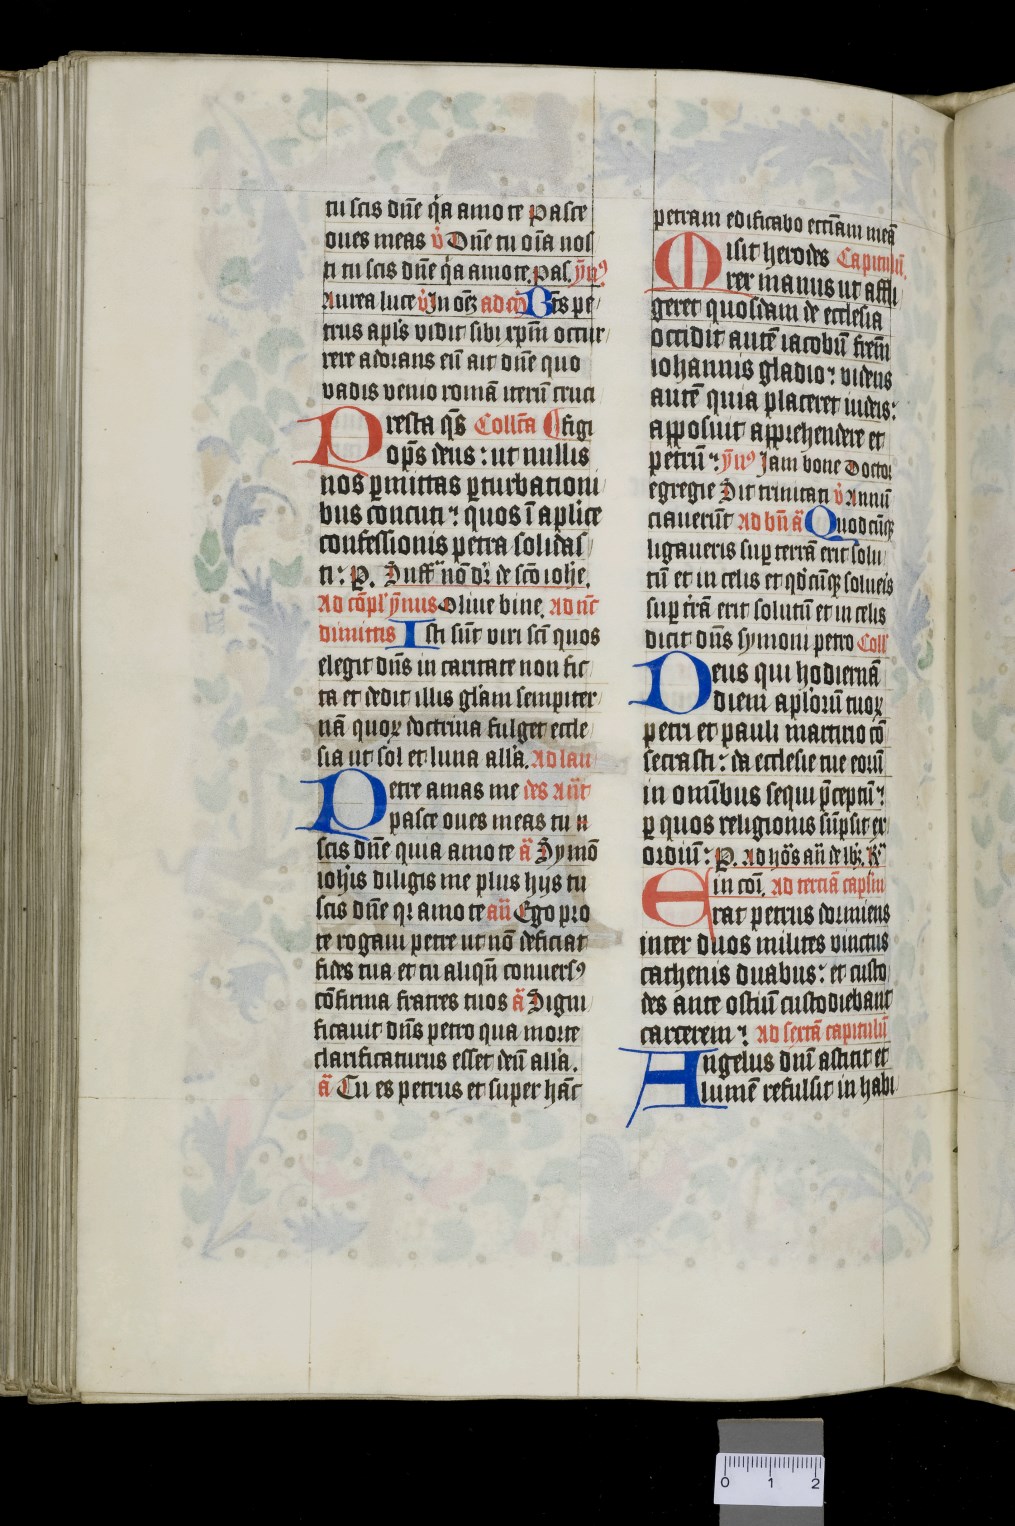 tu scis dn̄e q̇a amo te Pasce
oues meas v̇ Dn̄e tu oı̄a nos
ti tu scis dn̄e q̇a amo te. Pas. ȳn⁹
Aurea luce v̇ In oē Bt̄s pe
trus apl's vidit sibi xp̄m occur
rere adorans eū ait dn̄e quo
vadis venio romā iterū cruci
Presta qs̄ Collc̄a figi
op̄s deus : ut nullis
nos ꝑmittas ꝑturbationi
bus concuti : quos ī aplice
confessionis petra solidas
ti : P. Suff. nō dr̄ de sc̄o iohe.
Ad cōpl' ȳmnus Oliue bine. Ad nc̄
dimittis Isti sūt viri sc̄i quos
elegit dn̄s in caritate non fic
ta et dedit illis gl'am sempiter
nā quoꝝ doctrina fulget eccle
sia ut sol et luna all'a. Ad lau
Petre amas me des Añt
pasce oues meas tu
scis dn̄e quia amo te ā Symō
iohis diligis me plus hijs tu
scis dn̄e qı amo te añ Ego pro
te rogaui petre ut nō deficiat
fides tua et tu aliqn̄ conuers⁹
cōfirma fratres tuos ā Signi
ficauit dn̄s petro qua morte
clarificaturus esset deū all'a.
ā Tu es petrus et super hāc
petram edificabo eccl̄iam meā
Misit herodes Capitulū.
rex manus ut affli
geret quosdam de ecclesia
occidit autē iacobū frēm
iohannis gladio : videns
autē quia placeret iudeis :
apposuit apprehendere et
petrū : ȳn⁹ Iam bone Doctor
egregie Sit trinitati v̇ Annū
ciauerūt Ad bn̄ ā Quodcūqꝫ
ligaueris suꝑ terrā erit solu
tū et in celis et qđcūqꝫ solueis
suꝑ t'rā erit solutū et in celis
dicit dn̄s symoni petro Coll'
Deus qui hodiernā
diem aplorū tuoꝝ
petri et pauli martirio cō
secrasti : da ecclesie tue eorū
in omībus sequi p̄ceptū :
ꝑ quos religionis sūpsit ex
ordiū : P. Ad hōs añ de lbꝫ.
in coı̄. Ad terciā caplm
Erat petrus dormiens
inter duos milites vinctus
cathenis duabus : et custo
des ante ostiū custodiebant
carcerem : Ad sextā capitulū
Angelus dnı̄ astitit et
lumē refulsit in habi